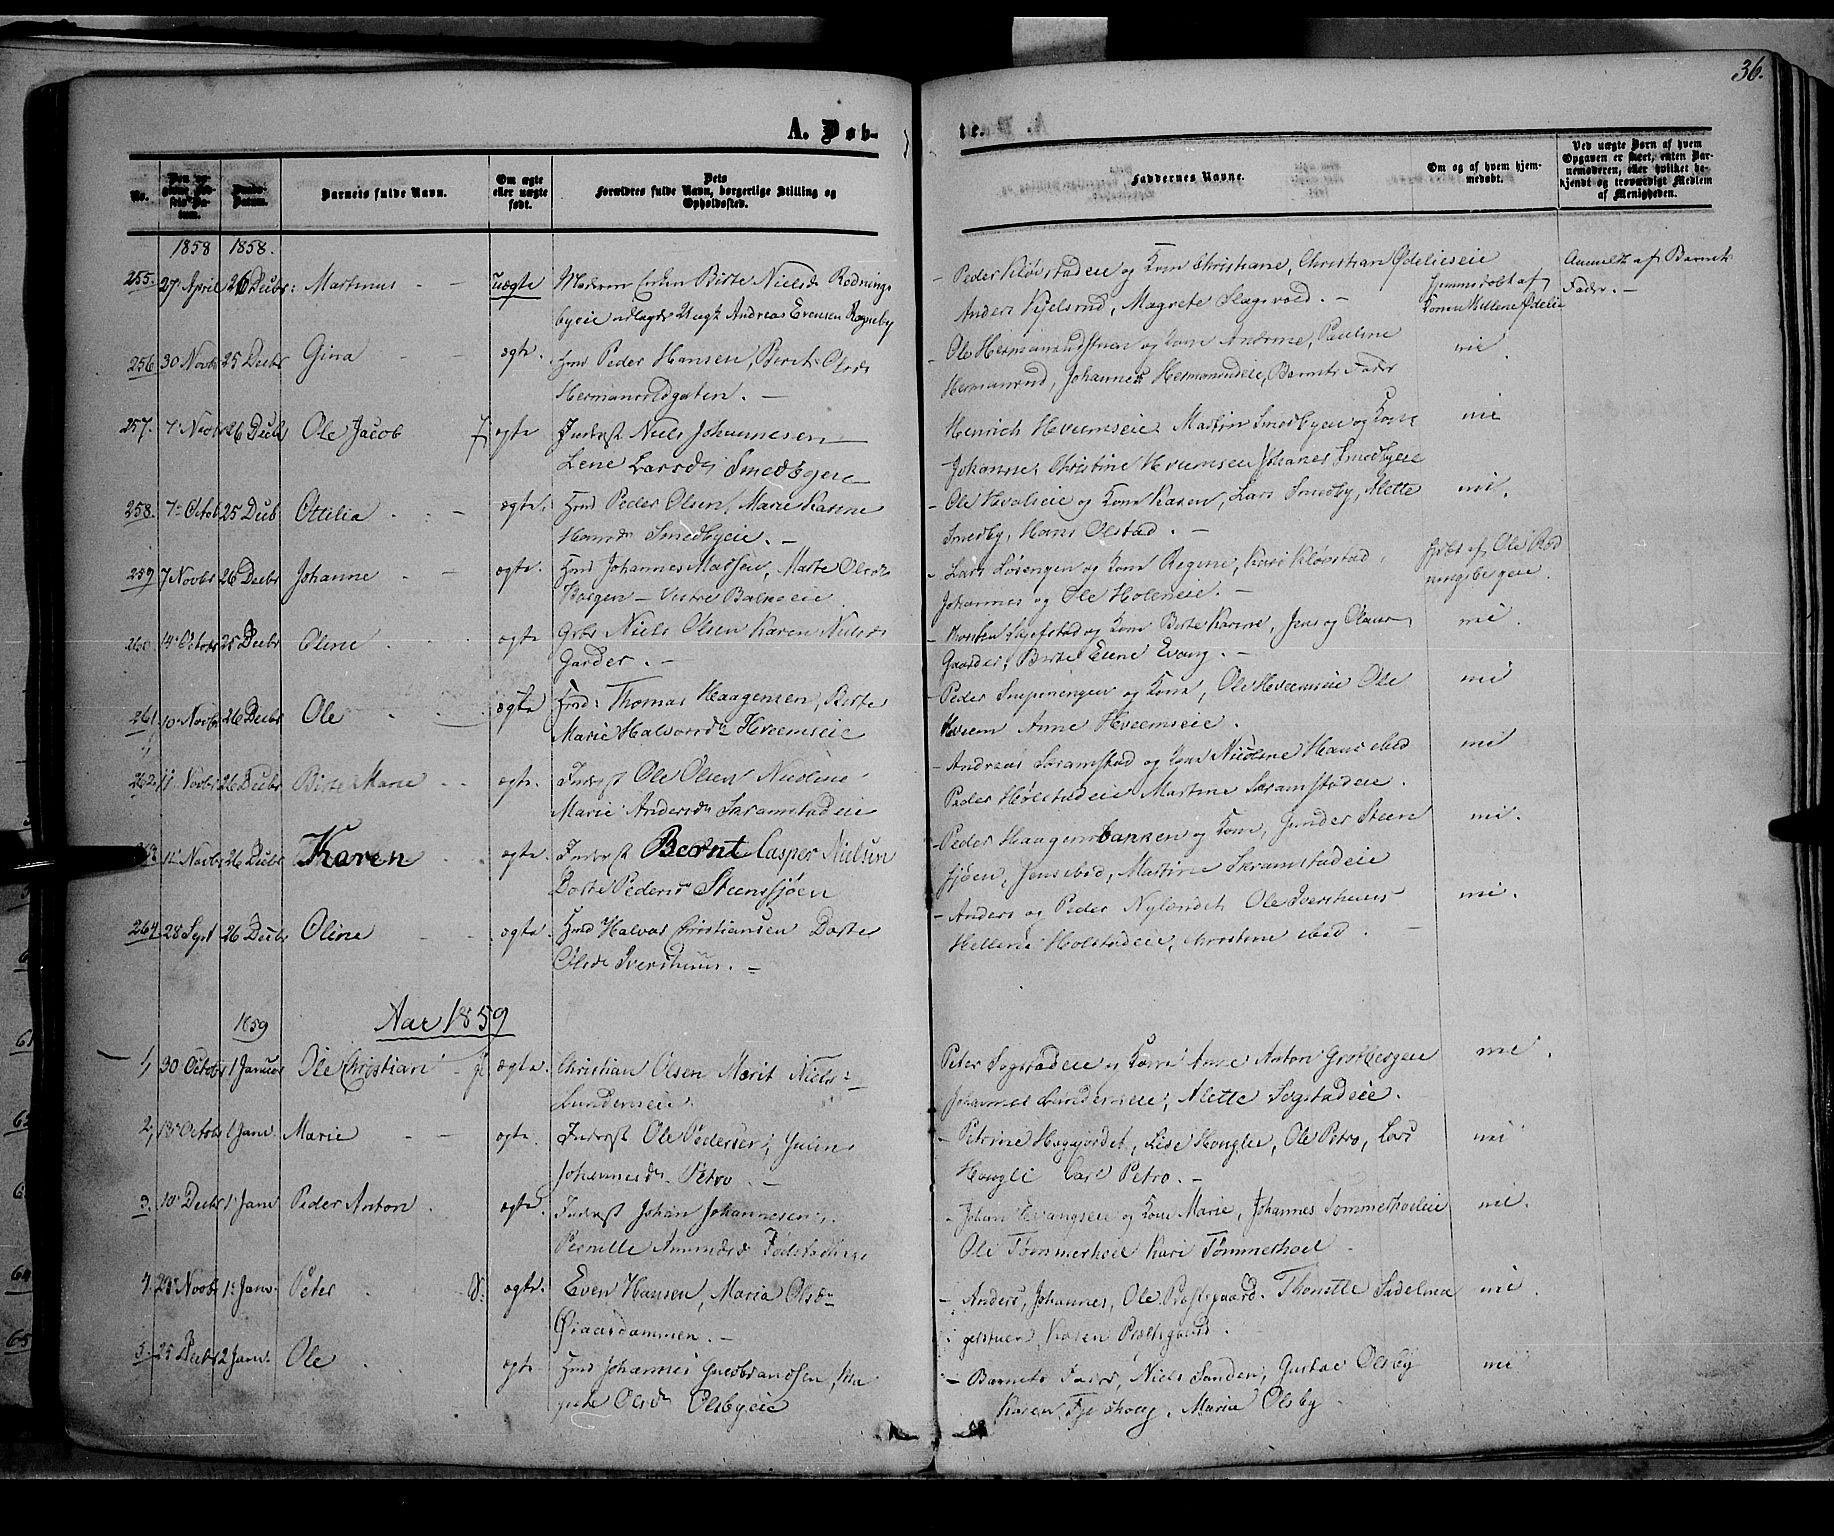 36.
A. Døb-
te.
No.
Barnets fulde Navn.
Om ægte
eller uægte
født.
Dets
Forældres fulde Navn, borgerlige Stilling og
Opholdssted.
Faddernes Navne.
Om og af hvem hjem-
medøbt.
Ved uægte Børn af hvem
Opgaven er skeet, enten Bar-
nemoderen, eller hvilket be-
kjendt og troværdigt Medlem
af Menigheden.
1858 1858.
255. 27 April 26 Decbr: Martinus - - uægte Moderen Enken Birte Nielsd Rødnings
byeie udlagde Ungk Andreas Evensen Rogneby
Peder Kløvstadeie og Kone Christiane, Christian Ødelieseie
Anders Kjelsrud, Magrete Slagsvold. -
Hjemmedøbt af
Konen Hellene Ødelie
Anmeldt af Barnets
Fader. -
256 30 Novbr 25 Decbr Gina - - ægte. Hmd Peder Hansen, Berit Olsd
Hermansrudgaten. -
- Ole Hermansrudstuen og Kone Andrine, Pauline
Hermansrud, Johannes Hermansrudeie, Barnets Fader
nei
257. 7 Novbr 26 Decbr Ole Jacob ægte Inderst Niels Johannesen
Lene Larsd Smedbyeie
Henrich Hveemseie Martin Smedbyen og Kone
Johanne, Christine Hveemseie Johanes Smedbyeie
nei
258. 7 Octob 25 Decb Ottilia - - ægte. Hmd Peder Olsen, Marie Karine
Hansd Smedbyeie. -
- Ole Hvalseie og Kone Karen, Lars Smedby, Alette
Smedby, Hans Olstad. -
nei.
259 7 Novbr 26 Decbr Johanne - - ægte. Hmd Johannes Madsen, Marte Olsd
Borgen - Vestre Balkeeie
- Lars Løvengen og Kone Regine, Kari Kløvstad,
Johannes og Ole Holerseie. -
hjdbt af Ole Rød
ningsbyeie.
260 14 Octobr 25 Decbr Oline - - ægte Gbr Niels Olsen Karen Nielsd
Garder. -
- Thorsten Skjefstad og Kone Birte Karine, Jens og Olaus
Gaarder, Birte Elene Evang. -
nei.
261 10 Novbr 26 Decbr Ole - - ægte Hmd: Thomas Haagensen, Birte
Marie Halvorsd Hveemseie
- Peder Sniperengen og Kone, Ole Hveemseie Ole
Hveem Anne Hveemseie.
nei
262 11 Novbr 26 Decbr Birte Marie - - ægte. Inderst Ole Olsen Nicoline
Marie Andersd Skramstadeie
- Andreas Skramstad og Kone Nicoline Hans ibid
Peder Holstadeie Martine Skramstadeie.
nei
263 11 Novbr 26 Decbr Karen - ægte. Inderst Bernt Casper Nielsen
Dorte Pedersd Steenssjøen
- Peder Haagensbakken og Kone, Gunder Steen
sjøen, Jens ibid, Martine Skramstadeie
nei.
264. 28 Sept 26 Decbr Oline - - ægte. Hmd Halvor Christiansen Dorte
Olsd Ivershuus. -
- Anders og Peder Nylendet Ole Ivershuus
Hellene Holstadeie, Christine ibid. -
nei.
1859 Aar 1859
1, 30 Octobr 1 Januar Ole Christian - ægte. Christian Olsen Marit Niels:
Lundenseie.
Peter Sogstadeie og Kone Anne Anton Grotbergeie
Johannes Lundenseie, Alette Sogstadeie.
nei.
2, 18 Octobr 1 Janr Marie - - ægte. Inderst Ole Pedersen, Juline
Johannesd Petro. -
- Petrine Haggjordet, Lise Haugli, Ole Petro, Lars
Haugli Carl Petro. -
nei
3. 10 Decbr 1 Janr Peder Anton. ægte. Inderst Johan Johannesen,
Pernille Amundsd
- Johan Evangseie og Kone Marie, Johannes Tømmerholeie
Ole Tømmerhoel Kari Tømmerhoel.
nei.
4. 29 Novbr 1 Janr Peter - ægte. Even Hansen, Maria Olsd
Øiaasdammen. -
- Anders, Johannes, Ole Præstgaard. Thonette Sadelma
gerstuen Karen Præstgaard.
nei.
5. 25 Decbr 2 Janr. Ole - ægte. Hmd Johannes Gudbrandsen, Ma
grete Olsd Olsbyeie
- Barnets Fader, Niels Sanden, Gustav Olsby
Karen Fjeldhoug, Maria Olsby.
nei